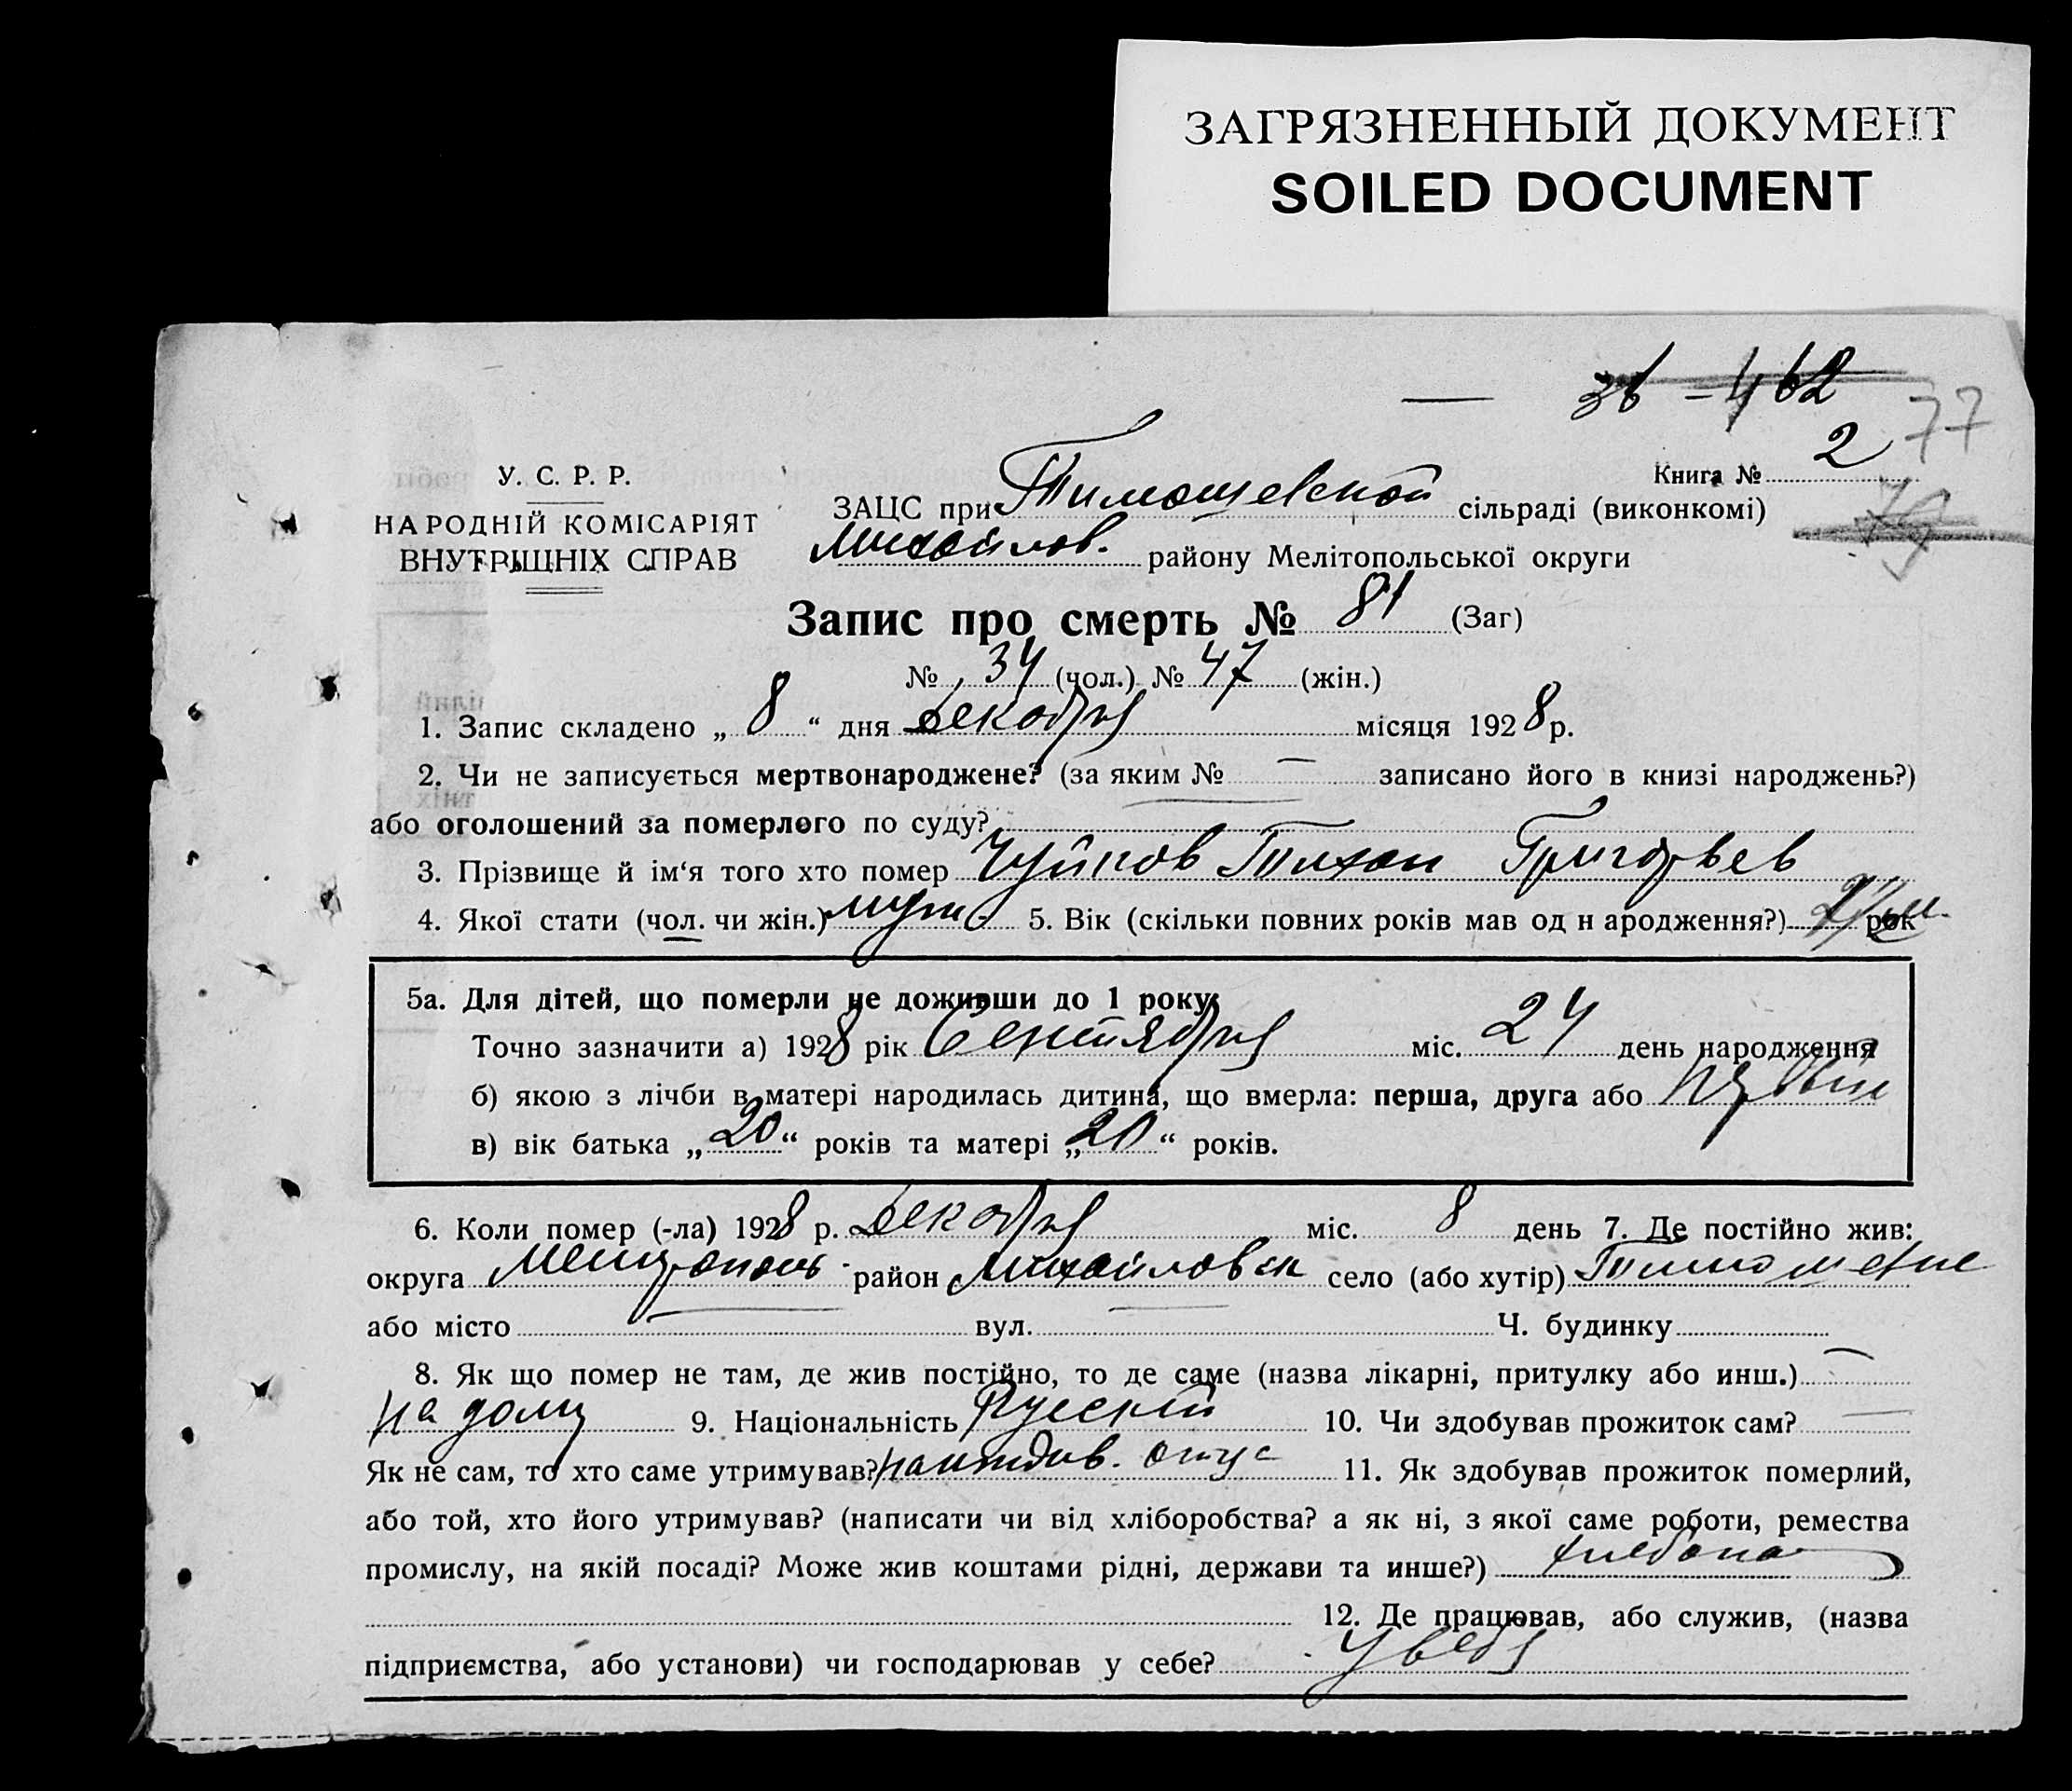 ЗАГРЯЗНЕННЫЙ ДОКУМЕНТ
SOILED DOCUMENT
77
Книга № 2
У. С. Р. Р.
НАРОДНІЙ КОМІСАРІЯТ
ВНУТРІШНІХ СПРАВ
ЗАЦС при Тимошевской сільраді (виконкомі)
Михайлов. району Мелітопольської округи
Запис про смерть № 81 (Заг)
№ 34 (чол.) № 47 (жін.)
1. Запис складено „ 8 “ дня Декабря місяця 1928 р.
2. Чи не записується мертвонароджене? (за яким № — записано його в книзі народжень?)
або оголошений за померлого по суду?
3. Прізвище й ім‘я того хто помер Чуйков Тихон Григорьев
4. Якої стати (чол. чи жін.) муж 5. Вік (скільки повних років мав од н ародження?) рок
5а. Для дітей, що померли не доживши до 1 року:
Точно зазначити а) 1928 рік Сентября міс. 24 день народження
б) якою з лічби в матері народилась дитина, що вмерла: перша, друга або
в) вік батька „ 20 “ років та матері „ 20 “ років.
6. Коли помер (-ла) 1928 р. Декабря міс. 8 день 7. Де постійно жив:
округа район Михайловск село (або хутір)
або місто — вул. — Ч. будинку
8. Як що помер не там, де жив постійно, то де саме (назва лікарні, притулку або инш.) —
на дому 9. Національність Русский 10. Чи здобував прожиток сам? —
Як не сам, то хто саме утримував? на иждив. отца 11. Як здобував прожиток померлий,
або той, хто його утримував? (написати чи від хліборобства? а як ні, з якої саме роботи, ремества
промислу, на якій посаді? Може жив коштами рідні, держави та инше?)
12. Де працював, або служив, (назва
підприємства, або установи) чи господарював у себе? У себя